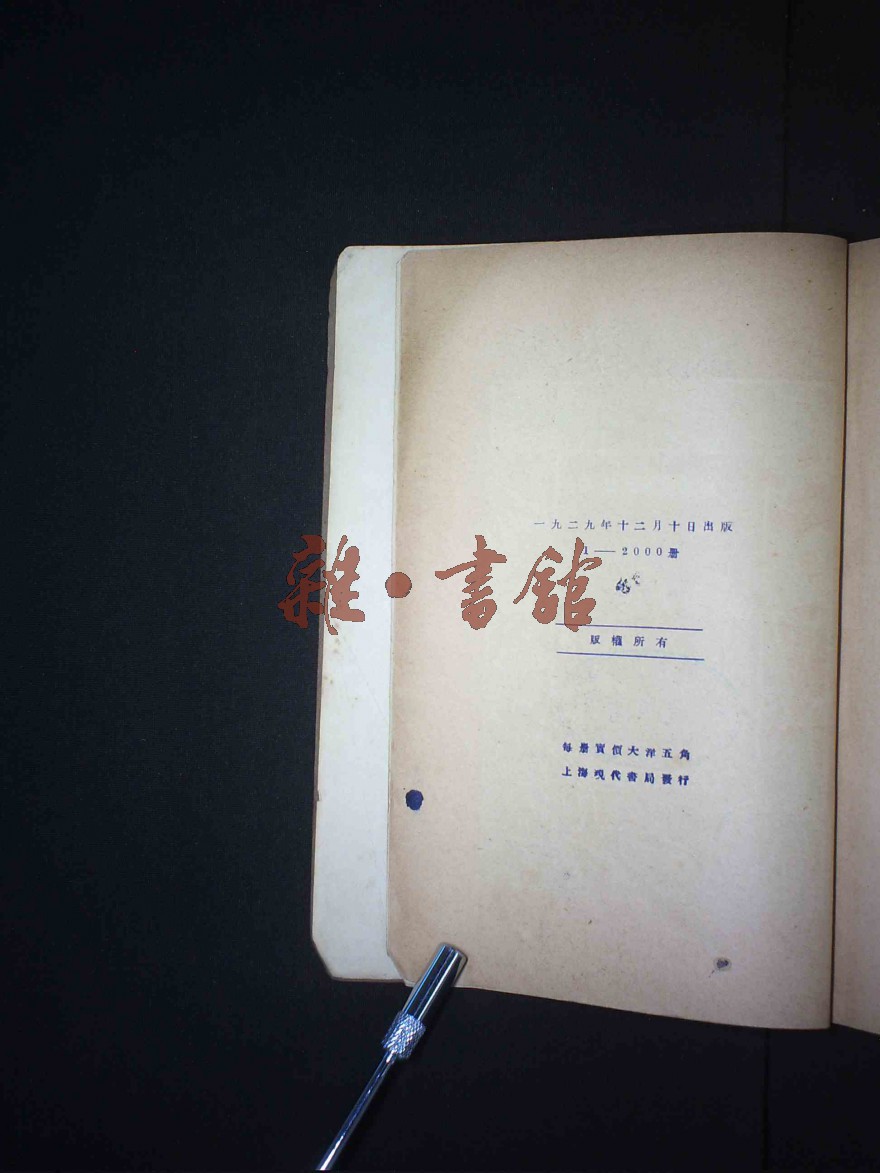 一九二九年十二月十日出版
1—2000册
雜·書館
版權所有
每册實價大洋五角
上海現代書局發行